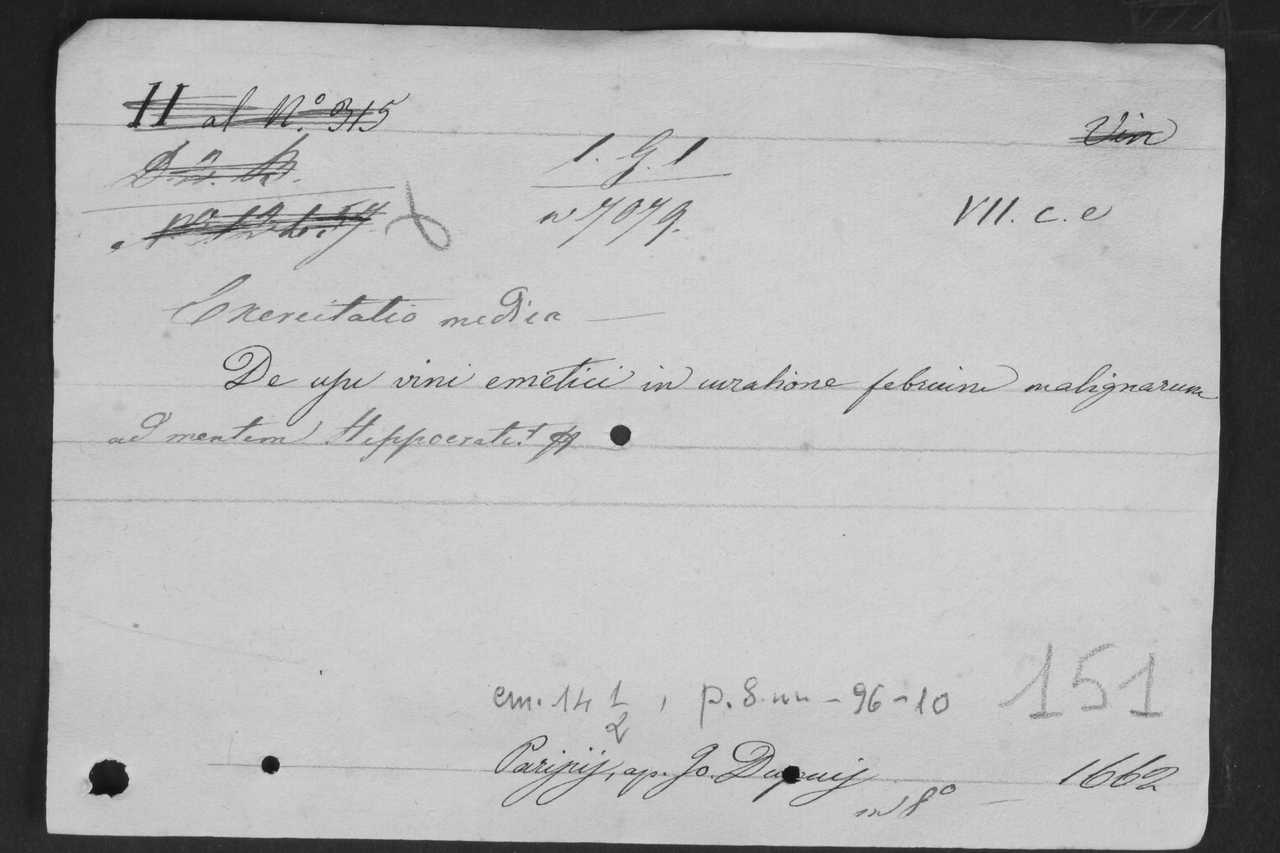 11 al N.º 315
Vin
1. G. 1
nº 7079.
VII. c. e
Exercitatio medica —
De usu vini emetici in curatione febrium malignarum
ad mentem Hippocratis
cm. 14 1/2, p. 8 nn - 96 - 10
151
Parisijs, ap. Jo. Dupuis
1662
in 8º —